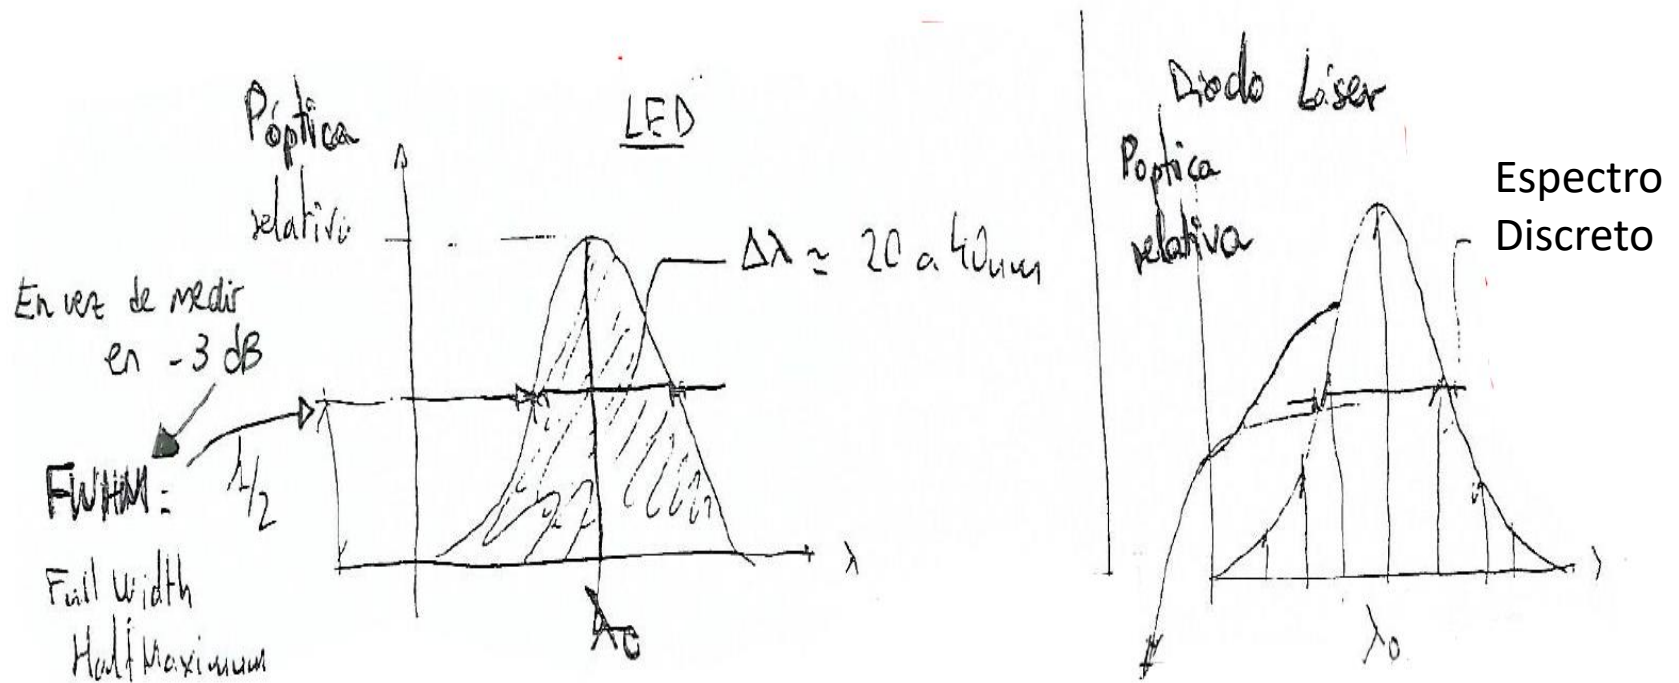 Póptica
relativa
LED
Δλ ≃ 20 a 40nm
En vez de medir
en -3 dB
FWHM =
1/2
Full Width
Half Maximum
λ
λ0
Diodo Láser
Poptica
relativa
Espectro
Discreto
λ
λ0